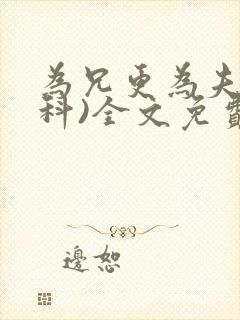 為兄更為夫
科)全文免費
邊恕